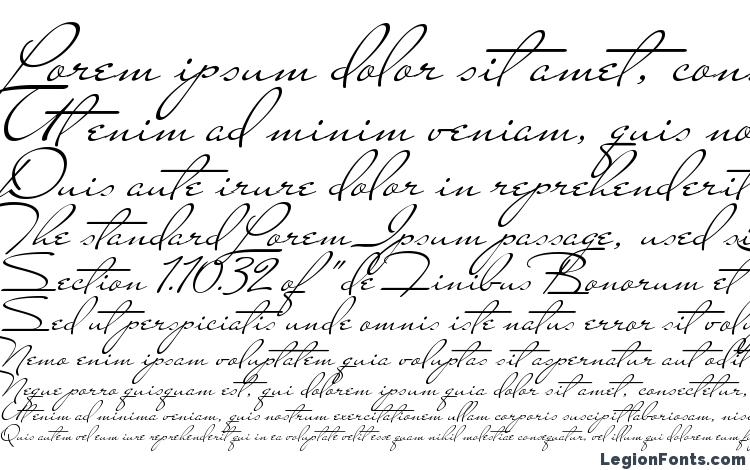 Lorem ipsum dolor sit amet, cons
Ut enim ad minim veniam, quis no
Duis aute irure dolor in reprehenderit
The standard Lorem Ipsum passage, used si
Section 1.10.32 of "de Finibus Bonorum et
Sed ut perspiciatis unde omnis iste natus error sit volu
Nemo enim ipsam voluptatem quia voluptas sit aspernatur aut odit
Neque porro quisquam est, qui dolorem ipsum quia dolor sit amet, consectetur,
Ut enim ad minima veniam, quis nostrum exercitationem ullam corporis suscipit laboriosam, nisi
Quis autem vel eum iure reprehenderit qui in ea voluptate velit esse quam nihil molestiae consequatur, vel illum qui dolorem eum f
LegionFonts.com